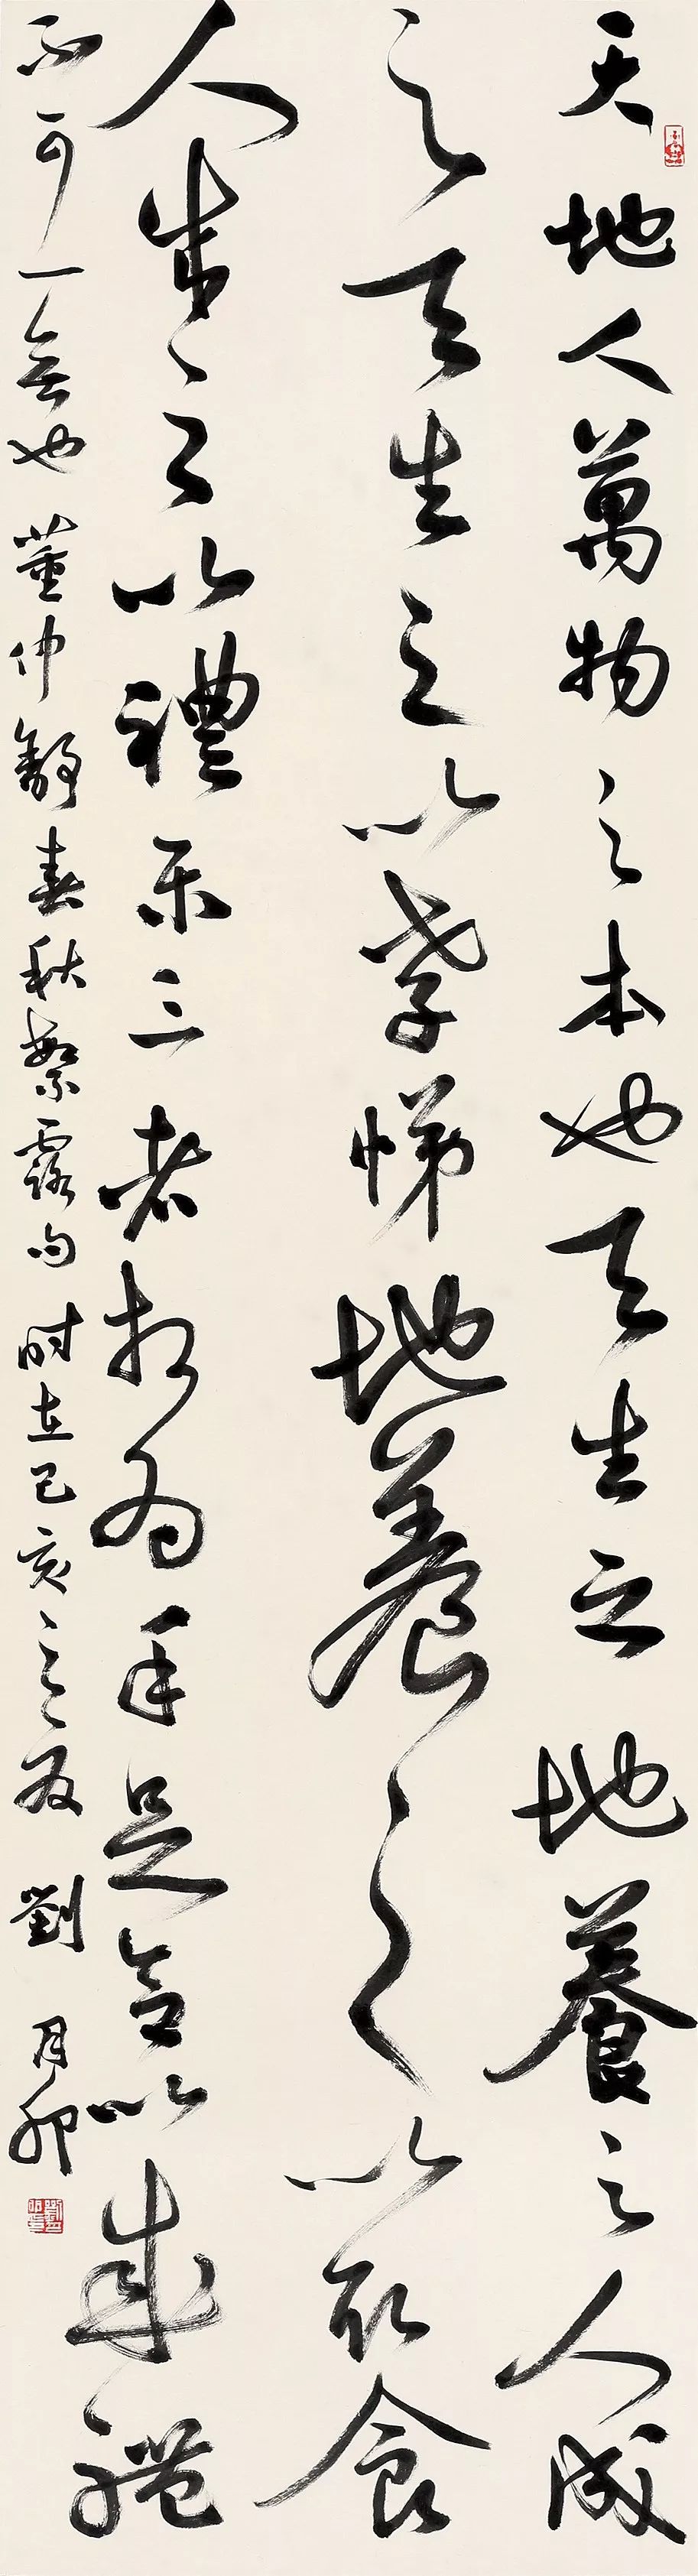 天地人萬物之本也天生之地養之人成
之天生之以孝悌地養之以衣食
人成之以禮樂三者相為手足合以成體
不可一無也 董仲舒春秋繁露句 時在己亥之夏 劉月卯